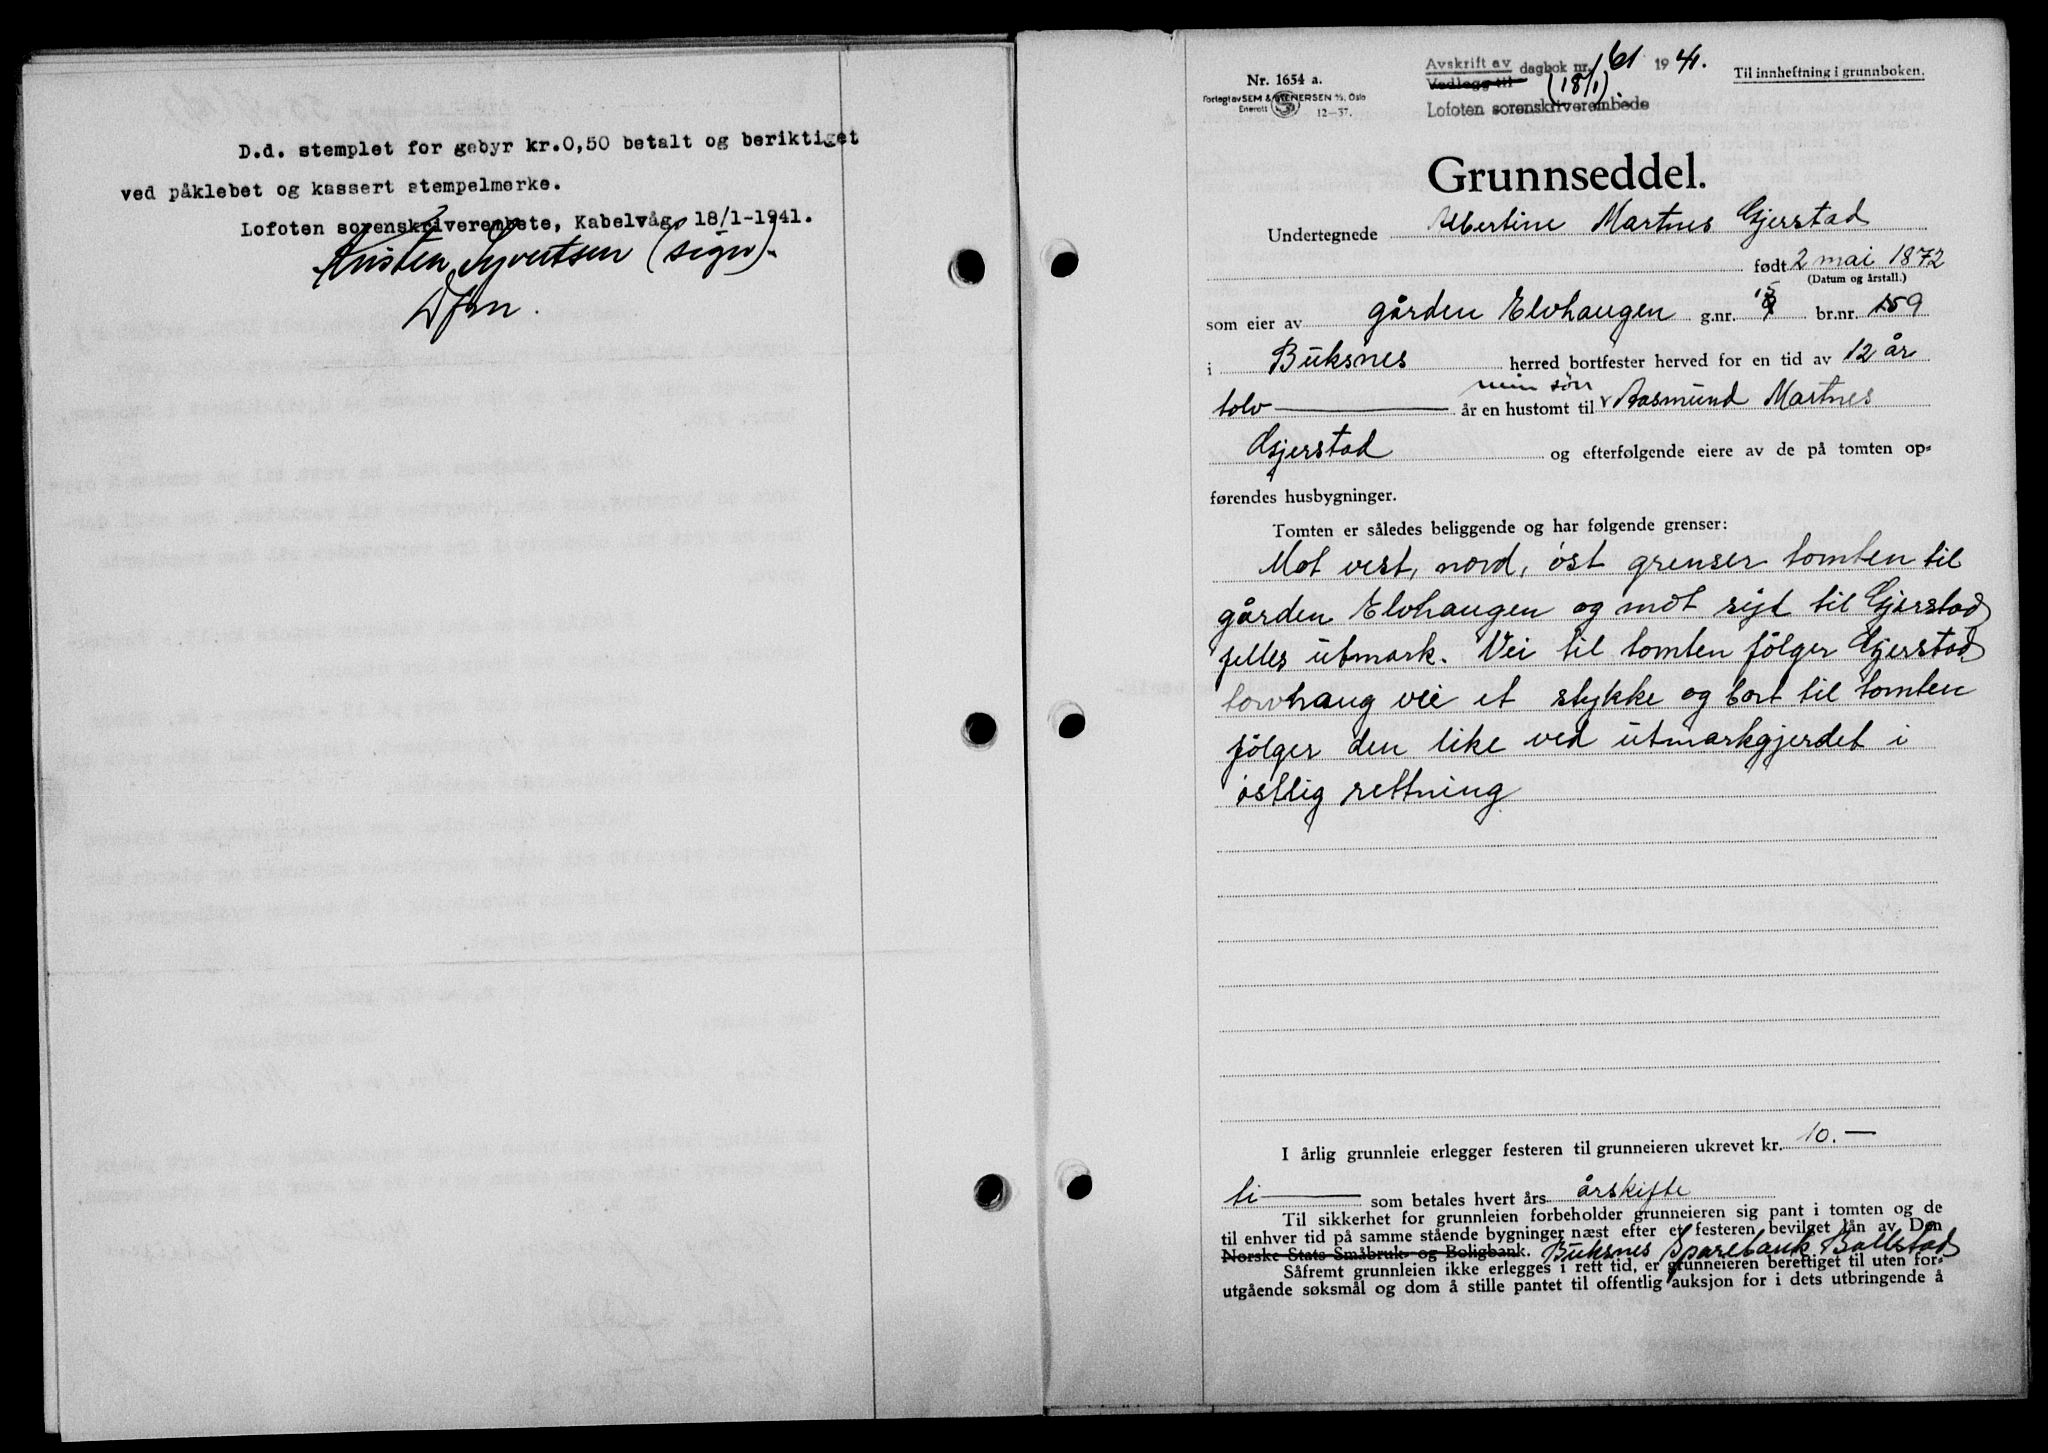 D.d. stemplet for gebyr kr.0,50 betalt og beriktiget
ved påklebet og kassert stempelmerke.
Lofoten sorenskriverembete, Kabelvåg, 18/1-1941.
Kristen Syvertsen (sign).
Dfm.
Nr. 1654 a.
Forlagt av SEM & STENERSEN A/S, Oslo
Enerett
12—37.
Avskrift av
Vedlegg til dagbok nr. 161 1941.
(18/1)
Lofoten sorenskriverembede
Til innheftning i grunnboken.
Grunnseddel.
Undertegnede Albertine Martnes Gjerstad
født 2 mai 1872
(Datum og årstall.)
som eier av gården Elvhaugen g.nr. 15 br.nr. 159
i Buksnes herred bortfester herved for en tid av 12 år
min søn
tolv år en hustomt til Aasmund Martnes
Gjerstad og efterfølgende eiere av de på tomten op-
førendes husbygninger.
Tomten er således beliggende og har følgende grenser:
Mot vest, nord, øst grenser tomten til
gården Elvhaugen og mot syd til Gjerstad
felles utmark. Vei til tomten følger Gjerstad
torvhaug vei et stykke og bort til tomten
følger den like ved utmarkgjerdet i
østlig rettning
I årlig grunnleie erlegger festeren til grunneieren ukrevet kr. 10.—
ti som betales hvert års årskifte
Til sikkerhet for grunnleien forbeholder grunneieren sig pant i tomten og de
til enhver tid på samme stående bygninger næst efter et festeren bevilget lån av Den
Norske Stats Småbruk- og Boligbank. Buksnes Sparebank Ballstad
Såfremt grunnleien ikke erlegges i rett tid, er grunneieren berettiget til uten for-
utgående søksmål og dom å stille pantet til offentlig auksjon for i dets utbringende å